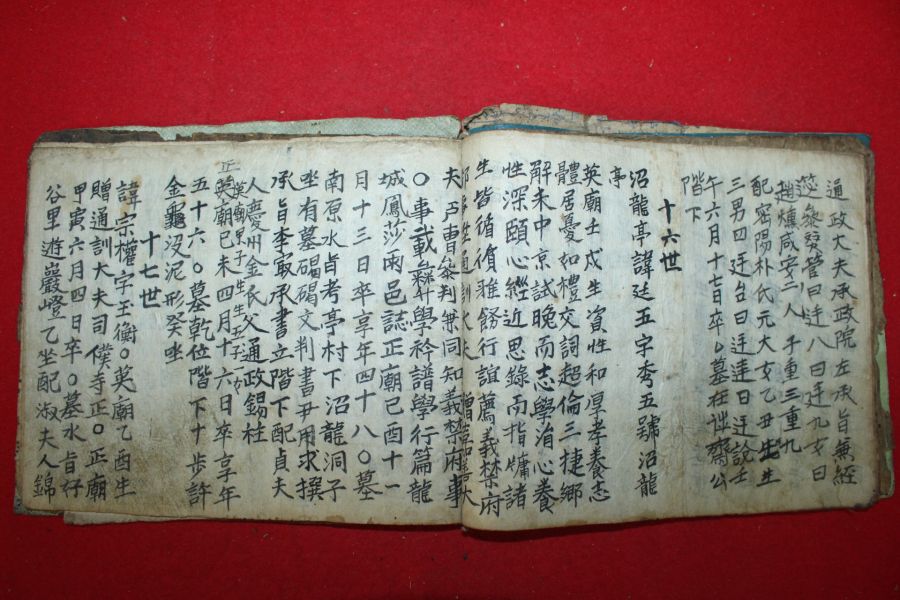 通政大夫承政院左承旨兼經
筵參贊官曰廷八曰廷九女曰
趙爀咸安二人 子重三重九
配密陽朴氏元大女乙丑生生
三男四廷台曰廷達曰廷說壬
午六月十七日卒○墓在 齋公
階下
十六世
沼龍亭諱廷五字秀五號沼龍
亭
英廟壬戌生資性和厚孝養志
體居憂如禮交詞超倫三捷鄉
解未中京試晚而志學洎心養
性深頤心經近思錄而指慵諸
生皆循循雅飭行誼薦義禁府
通訓大夫 贈嘉善大
夫戶曹參判兼同知義禁府事
○事載 學衿譜學行篇龍
城鳳莎兩邑誌正廟己酉十一
月十三日卒享年四十八○墓
南原水旨考亭村下沼龍洞子
坐有墓碣碣文判書尹用求撰
承旨李 承書立階下配貞夫
人慶州金氏父通政錫柱
英廟甲子生生五子一女
正廟己未四月十六日卒享年
五十六○墓乾位階下十步許
金龜沒泥形癸坐
十七世
諱宗權字玉衡○英廟乙酉生
贈通訓大夫司僕寺正○正廟
甲寅六月四日卒○墓水旨仔
谷里遊巖嶝乙坐配淑夫人錦